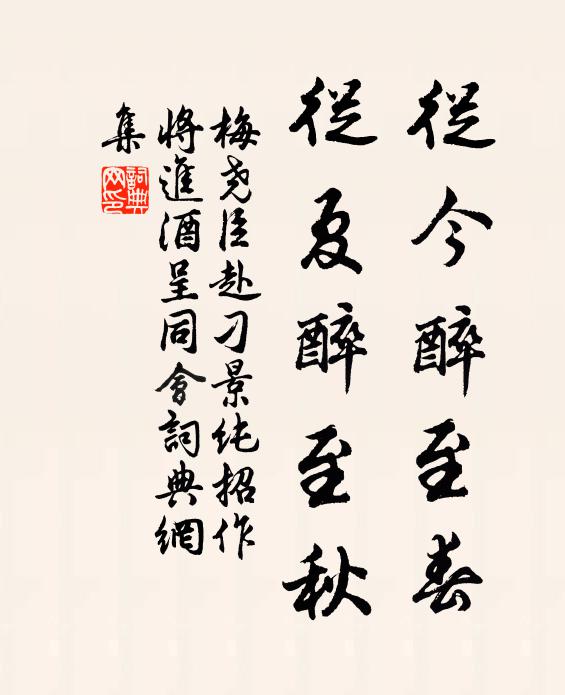 從今醉至春
從夏醉至秋
梅堯臣赴刁景純招作
將進酒呈同會詞典網
集
詞典
网印